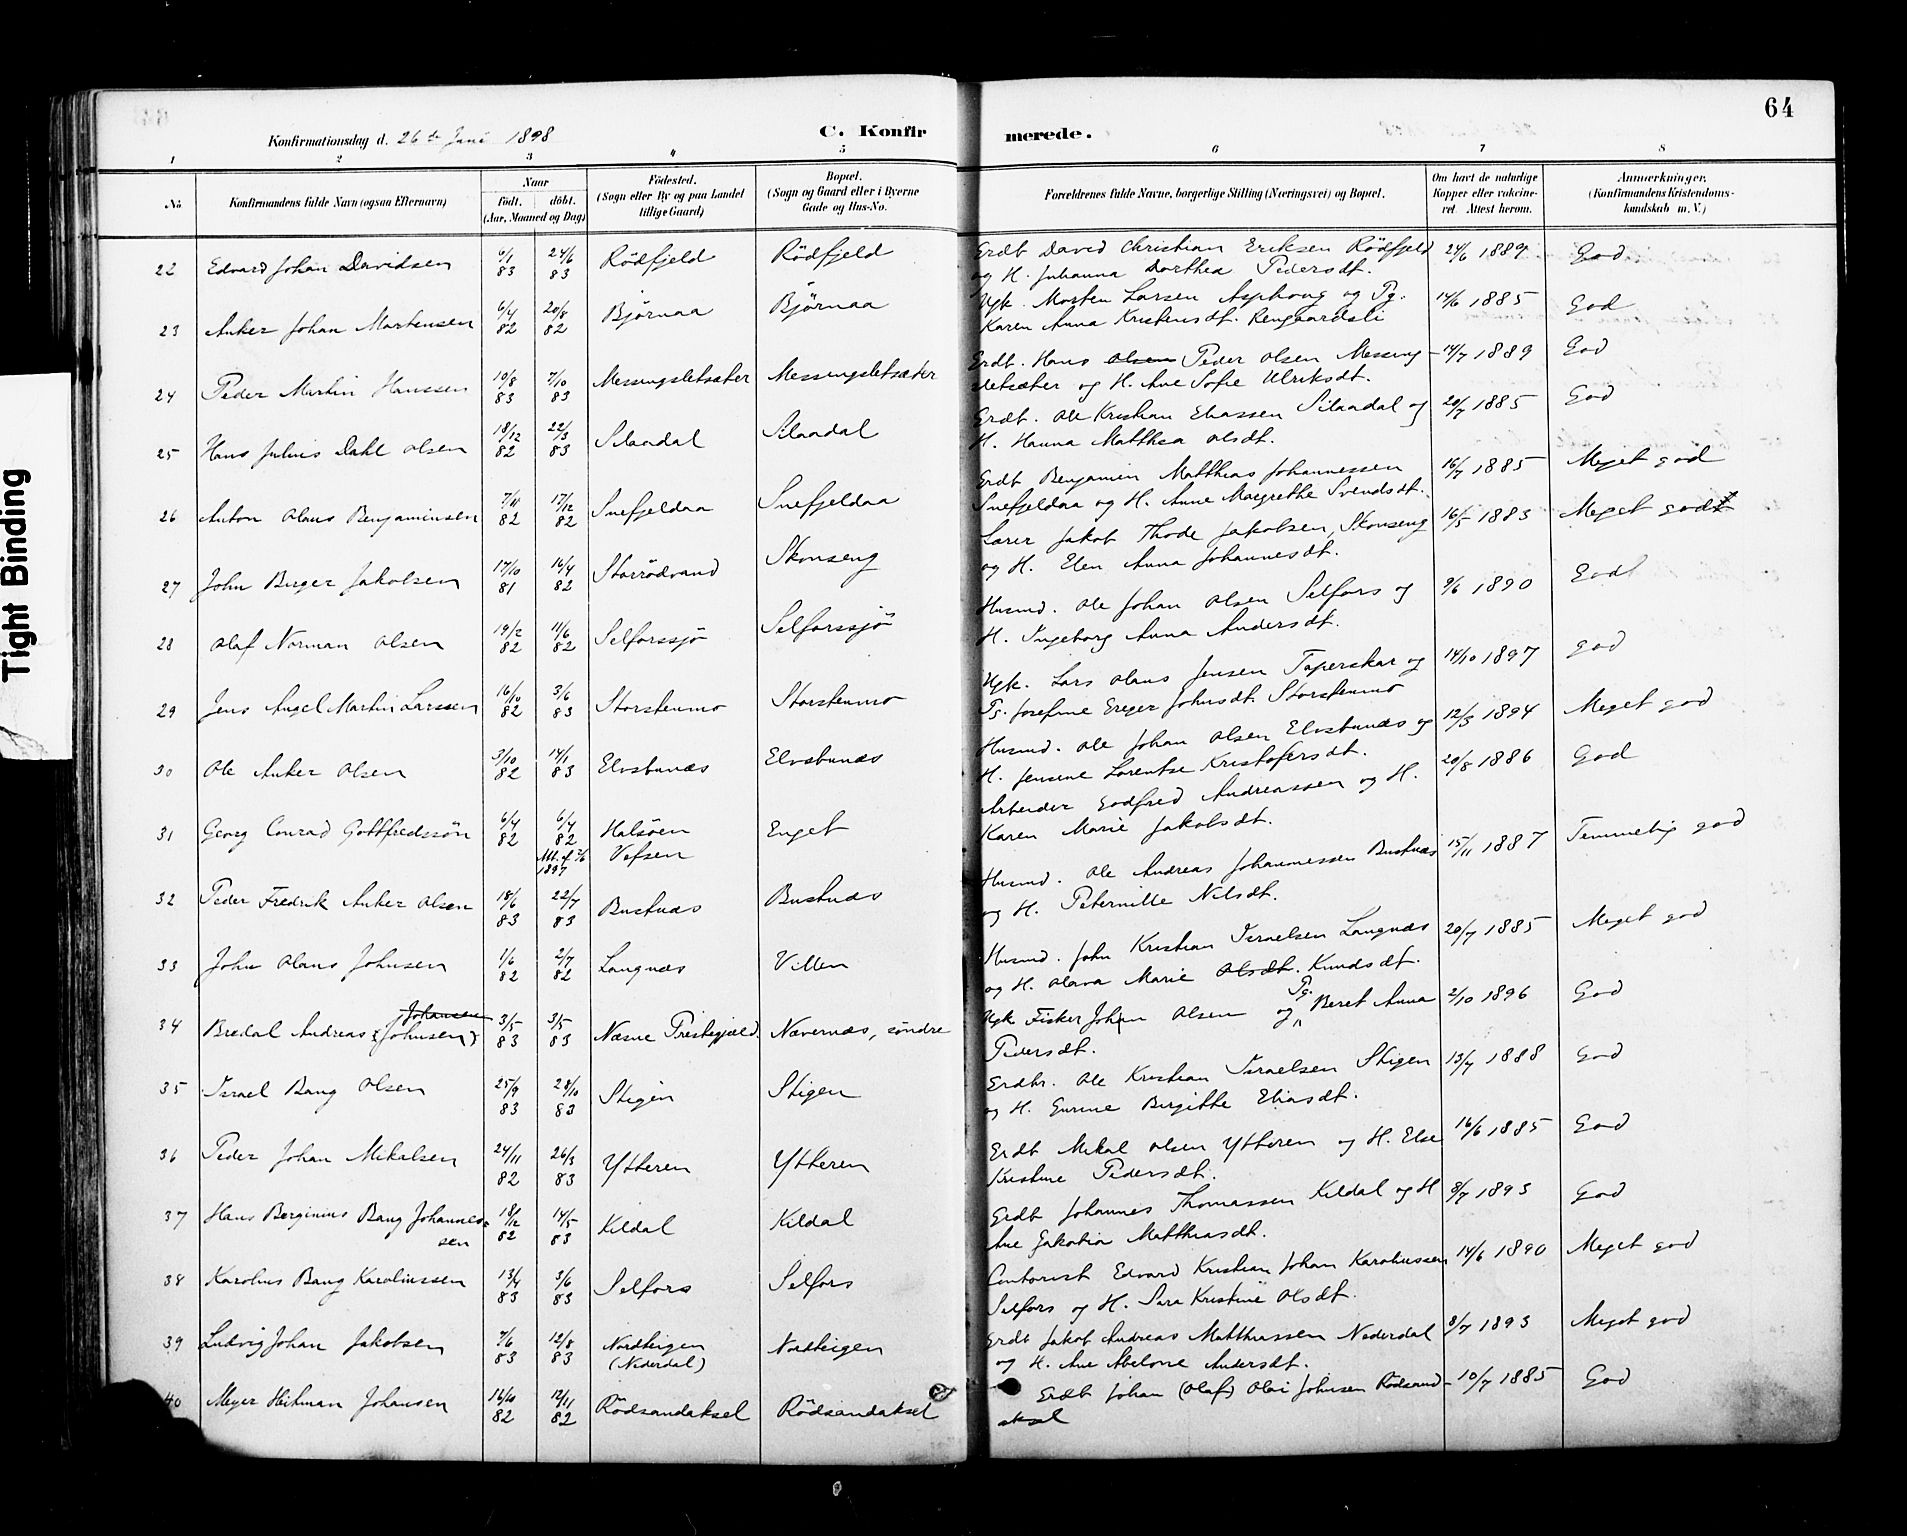 64
Konfirmationsdag d. 26de Juni 1898
C. Konfirmerede.
1 2 3 4 5 6 7 8
No
Konfirmandens fulde Navn (ogsaa Efternavn)
Naar
født. døbt.
(Aar, Maaned og Dag)
Fødested.
(Sogn eller By og paa Landet
tillige Gaard)
Bopæl.
(Sogn og Gaard eller i Byerne
Gade og Hus-No.
Forældrenes fulde Navne, borgerlige Stilling (Næringsvei) og Bopæl.
Om havt de naturlige
Kopper eller vaccine-
ret. Attest herom.
Anmærkninger.
(Konfirmandens Kristendoms-
kundskab m. V.)
22 Edvard Johan Davidsen 6/1 83 24/6 83 Rödfjeld Rödfjeld
Erdt David Christian Eriksen Rödfjeld 24/6 1889 God
og H. Johanna Dorthea Pedersdt.
23 Anker Johan Martensen 6/4 82 20/8 82 Björnaa Björnaa
Ugk. Morten Larsen Asphoug og Pg. 14/6 1885 God
Karen Anna Kristensdt. Rengaardsli
24 Peder Martin Hanssen 10/8 83 7/10 83 Messingsletsæter Messingsletsæter
Erdt. Hans Olsen Peder Olsen Messing- 14/7 1889 God
sletsæter og H. Ane Sofie Ulriksdt.
25 Hans Julius Dahl Olsen 18/12 82 22/3 83 Silaadal Silaadal
Erdt. Ole Kristian Eliassen Silaadal og 20/7 1885 God
H. Hanna Matthea Olsdt.
26 Anton Olaus Benjaminsen 7/11 82 17/12 82 Snefjeldaa Snefjeldaa
Erdt Benjamin Matthias Johannessen 16/7 1885 Meget god
Snefjeldaa og H. Anne Margrethe Svendsdt.
27 John Birger Jakobsen 17/10 81 16/4 82 Storrödvand Skonseng
Lærer Jakob Thode Jakobsen, Skonseng 16/5 1883 Meget godt
og H. Elen Anna Johannesdt.
28 Olaf Norman Olsen 19/2 82 11/6 82 Selforssjö Selforssjö
Husmd. Ole Johan Olsen Selfors og 9/6 1890 Godt
H. Ingeborg Anna Andersdt.
29 Jens Angel Martin Larssen 16/10 82 3/6 83 Storstenmo Storstenmo
Ugk. Lars Olaus Jensen Taperskar og 14/10 1897 god
Pg. Josefine Greger Johnsdt. Storstenmo
30 Ole Anker Olsen 3/10 82 14/1 83 Elvsbunæs Elvsbunæs
Husmd. Ole Johan Olsen Elvsbunæs og 12/3 1894 Meget god
H. Jensine Lorentse Kristofersdt.
31 Georg Conrad Gottfredssön 6/4 82 6/4 82 Halsöen Enget
Att. af 7/6 1897 Vefsen
Arbeider Godfred Andreassen og H. 20/8 1886 God
Karen Marie Jakobsdt.
32 Peder Fredrik Anker Olsen 18/6 83 22/7 83 Bustnæs Bustnæs
Husmd. Ole Andreas Johannessen Bustnæs 15/11 1887 Temmelig god
og H. Pernille Nilsdt.
33 John Olaus Johnsen 1/6 82 2/7 82 Langnæs Villen
Husmd. John Kristian Israelsen Langnæs 20/7 1885 Meget god
og H. Olava Marie Olsdt. Knudsdt.
34 Bredal Andreas (Johnsen) Johansen 3/5 83 3/5 83 Næsne Prestegjæld. Nævernæs, söndre
Ugk Fisker Johan Olsen og Pg. Beret Anna 2/10 1896 God
Pedersdt.
35 Israel Bang Olsen 25/9 83 28/10 83 Stigen Stigen
Erdbr. Ole Kristian Israelsen Stigen 13/7 1888 God
og H. Gurine Birgitte Eliasdt.
36 Peder Johan Mikalsen 24/11 82 26/3 83 Ytteren Ytteren
Erdt Mikal Olsen Ytteren og H. Else 16/6 1885 God
Kristine Pedersdt.
37 Hans Berginius Bang Johannes- 18/12 82 14/5 83 Kildal Kildal
sen
Erdt Johannes Thomassen Kildal og H 8/7 1893 God
Ane Jakobia Matthiasdt.
38 Karolius Bang Karoliussen 13/4 83 3/6 83 Selfors Selfors
Contorist Edvard Kristian Johan Karoliussen 14/6 1890 Meget god
Selfors og H. Sara Kristine Olsdt.
39 Ludvig Johan Jakobsen 7/6 83 12/8 83 Nordteigen Nordteigen
(Nederdal)
Erdt Jakob Andreas Matthiassen Nederdal 8/7 1893 Meget god
og H. Ane Abelone Andersdt.
40 Meyer Heitman Johansen 16/10 82 12/11 82 Rödsandaksel Rödsandaksel
Erdt Johan (Olaf) Olai Johnsen Rödsand- 10/7 1885 God
aksel
Tight Binding